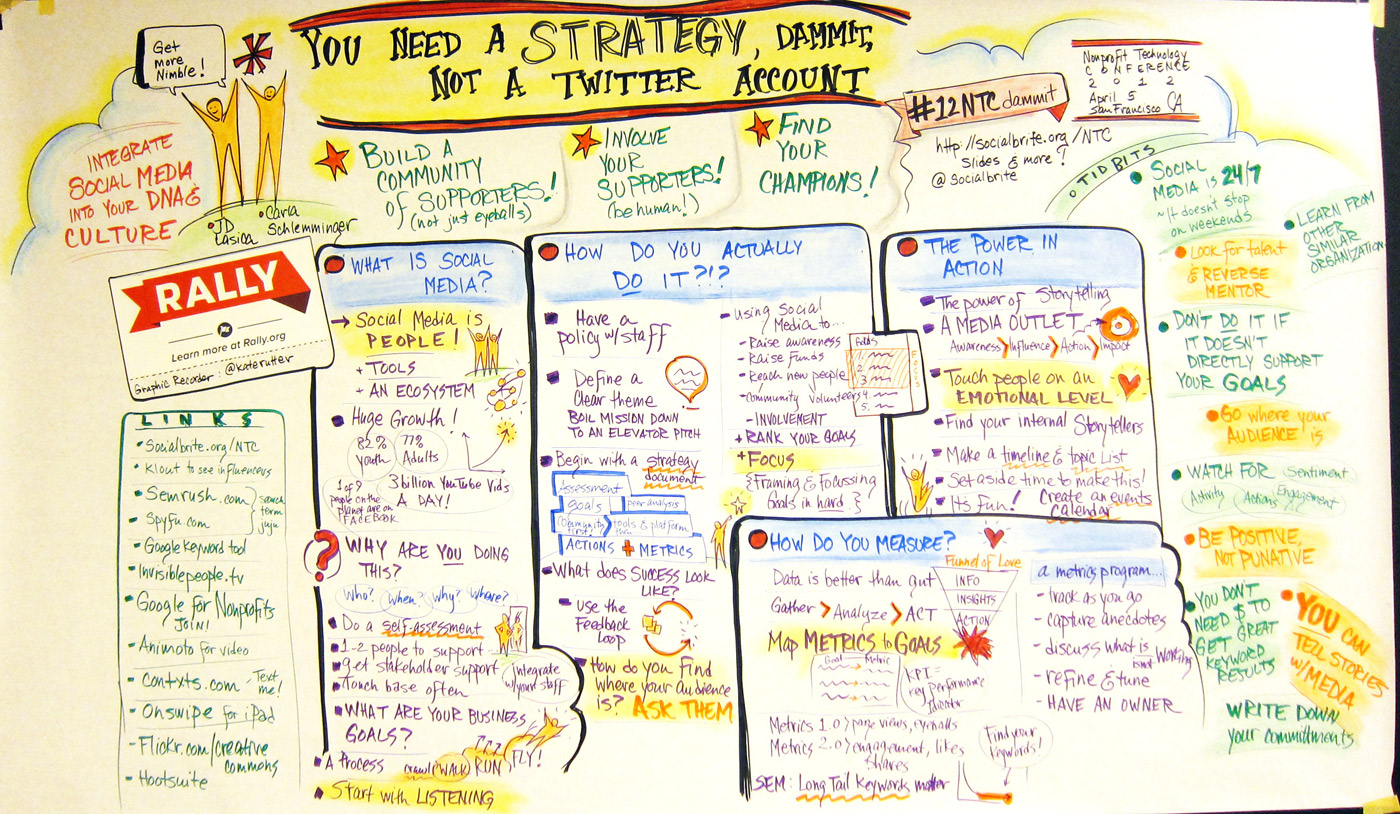 Get
more
Nimble!
YOU NEED A STRATEGY, DAMMIT,
NOT A TWITTER ACCOUNT
#12NTC dammit
Nonprofit Technology
CONFERENCE
2012
April 5
San Francisco CA
http://socialbrite.org/NTC
Slides & more!
@Socialbrite
INTEGRATE
SOCIAL MEDIA
INTO YOUR DNA &
CULTURE
• JD
Lasica
• Carla
Schlemminger
BUILD A
COMMUNITY
OF SUPPORTERS!
(not just eyeballs)
INVOLVE
YOUR
SUPPORTERS!
(be human!)
FIND
YOUR
CHAMPIONS!
RALLY
Learn more at Rally.org
Graphic Recorder: @katerutter
LINKS
• Socialbrite.org/NTC
• Klout to see influencers
• Semrush.com
• Spyfu.com
search
term
juju
• Google Keyword tool
• Invisiblepeople.tv
• Google for Nonprofits
JOIN!
• Animoto for video
• Contxts.com - Text
me!
• Onswipe for iPad
- Flickr.com/creative
commons
- Hootsuite
WHAT IS SOCIAL
MEDIA?
→ Social Media is
PEOPLE!
+ TOOLS
+ AN ECOSYSTEM
Huge Growth!
82%
youth
77%
Adults
1 of 9
people on the
planet are on
FACEBOOK
3 billion YouTube Vids
A DAY!
?
WHY ARE YOU DOING
THIS?
Who? When? Why? Where?
Do a self-assessment
1-2 people to support
get stakeholder support
Touch base often
Integrate
w/your staff
WHAT ARE YOUR BUSINESS
GOALS?
A Process crawl WALK RUN FLY!
Start with LISTENING
HOW DO YOU ACTUALLY
DO IT?!?
Have a
policy w/staff
Define a
Clear theme
BOIL MISSION DOWN
TO AN ELEVATOR PITCH
Begin with a strategy
document
assessment
goals peer analysis
community first! then tools & platform
ACTIONS + METRICS
What does SUCCESS LOOK
LIKE?
use the
Feedback
Loop
How do you find
where your audience
is? ASK THEM
- Using Social
Media to...
- Raise awareness
- Raise funds
- Reach new people
- Community Volunteers
- INVOLVEMENT
+ RANK YOUR GOALS
+ FOCUS
{Framing & Focussing
Goals in hard}
1
2
3
4.
5.
FOCUS
THE POWER IN
ACTION
The power of Storytelling
A MEDIA OUTLET
Awareness > Influence > Action > Impact
Touch people on an
EMOTIONAL LEVEL
Find your internal Storytellers
Make a timeline & topic List
Set aside time to make this!
It's fun! Create an events
calendar
HOW DO YOU MEASURE?
Data is better than gut
Gather > Analyze > ACT
Map METRICS to GOALS
Goal Metric
KPI =
key performance
indicator
Metrics 1.0 > page views, eyeballs
Metrics 2.0 > engagement, likes
shares
SEM: Long Tail Keywords matter
Funnel of Love
INFO
INSIGHTS
ACTION
Find your
Keywords!
a metrics program...
- track as you go
- capture anecdotes
- discuss what is
isn't working
- refine & tune
- HAVE AN OWNER
TIDBITS
• SOCIAL
MEDIA IS 24/7
~ It doesn't stop
on weekends
• LEARN FROM
OTHER
SIMILAR
ORGANIZATION
• Look for talent
& REVERSE
MENTOR
• DON'T DO IT IF
IT DOESN'T
DIRECTLY SUPPORT
YOUR GOALS
• GO where your
AUDIENCE is
• WATCH FOR Sentiment
Activity Actions Engagement
• BE POSITIVE,
NOT PUNATIVE
• YOU DON'T
NEED $ TO
GET GREAT
KEYWORD
RESULTS
• YOU CAN
TELL STORIES
w/MEDIA
WRITE DOWN
your commitments